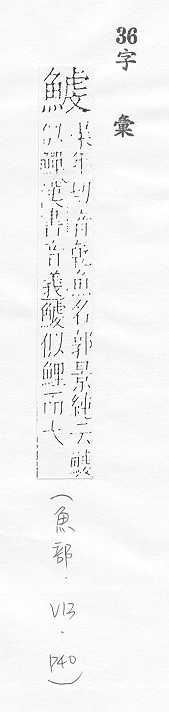 36字彙
鰬
年切音乾魚名郭景純云鰬
似鱓漢書音義鰬似鯉而大
(魚部.V13.P40)